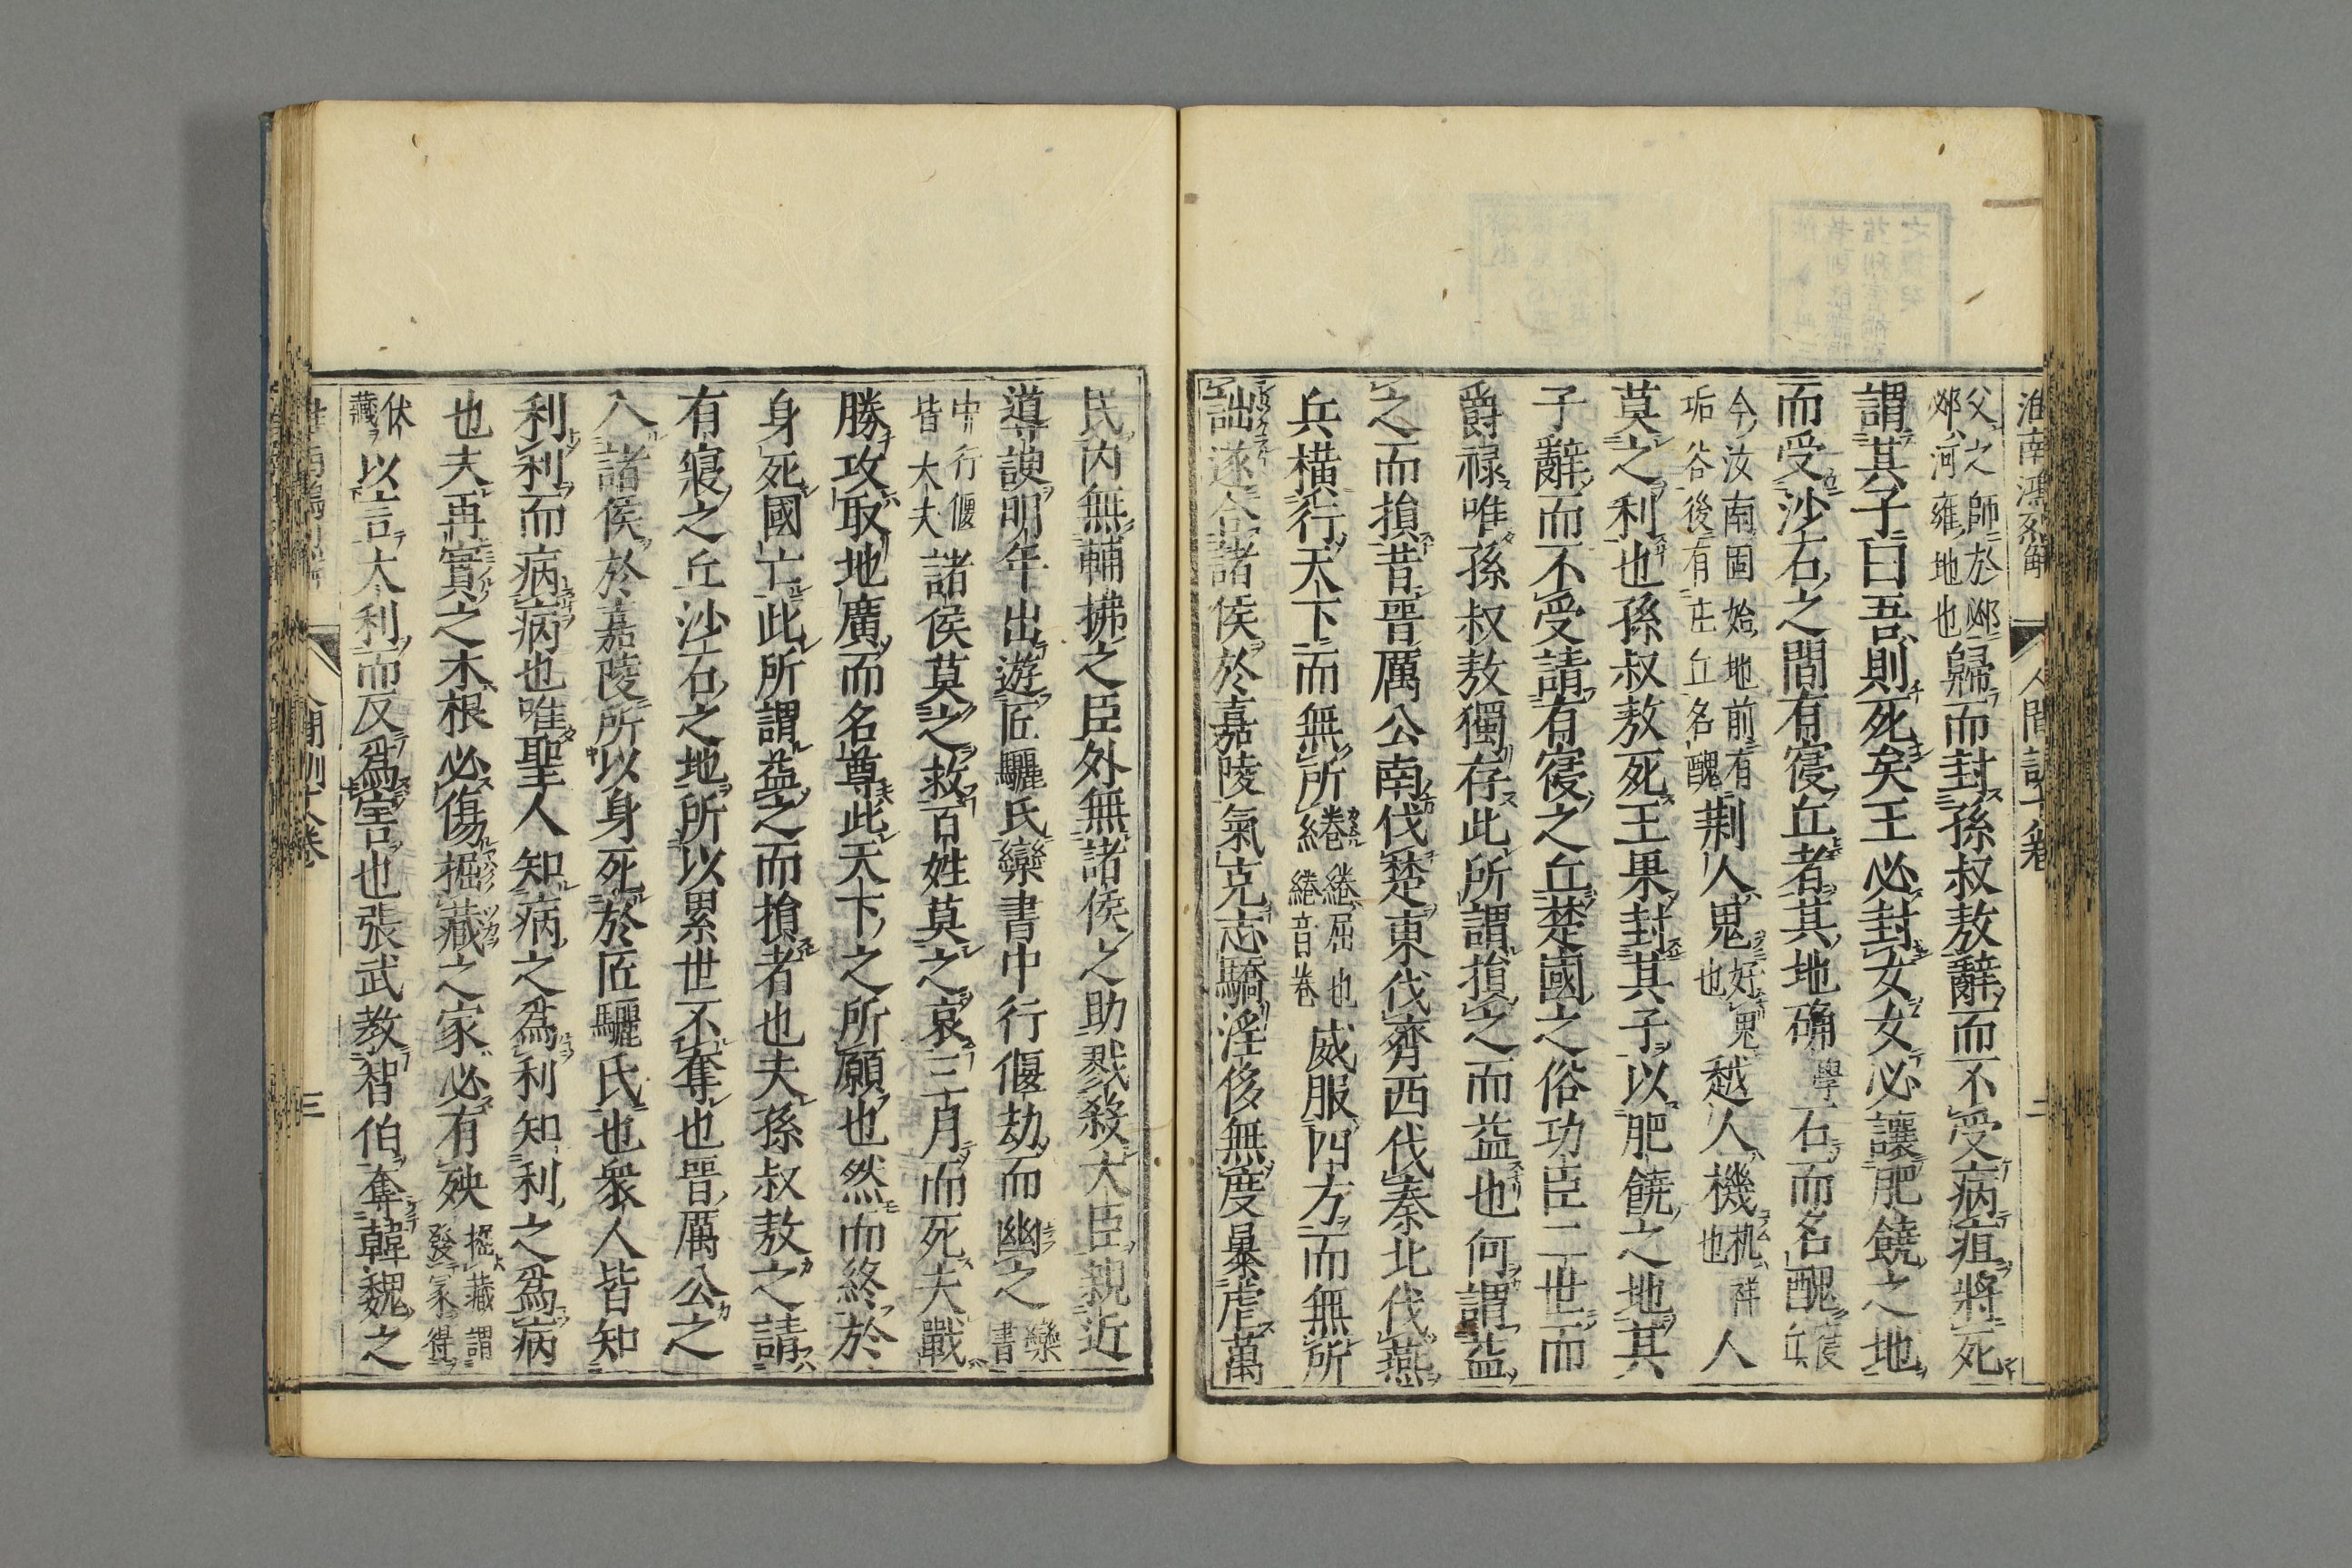 淮南鴻烈解 人間訓十八卷 二
父之師於郊郊河雍地也歸而封孫叔敖辭而不受病疽將死
謂其子曰吾則死矣王必封女女必讓肥饒之地
而受沙石之間有寑丘者其地确學石而名醜寑丘
今汝南固始地前有垢谷後有庄丘名醜荆人鬼好鬼也越人機机祥也人
莫之利也孫叔敖死王果封其子以肥饒之地其
子辭而不受請有寑之丘楚國之俗功臣二世而
爵祿唯孫叔敖獨存此所謂損之而益也何謂益
之而損昔晉厲公南伐楚東伐齊西伐秦北伐燕
兵橫行天下而無所綣綣屈也綣音卷威服四方而無所
詘遂合諸侯於嘉陵氣充志驕淫侈無度暴虐萬
民内無輔拂之臣外無諸侯之助戮殺大臣親近
導諛明年出遊匠驪氏欒書中行偃劫而幽之欒書
中行偃皆大夫諸侯莫之救百姓莫之哀三月而死夫戰
勝攻取地廣而名尊此天下之所願也然而終於
身死國亡此所謂益之而損者也夫孫叔敖之請
有寑之丘沙石之地所以累世不奪也晉厲公之
入諸侯於嘉陵所以身死於匠驪氏也衆人皆知
利利而病病也唯聖人知病之爲利知利之爲病
也夫再實之木根必傷掘藏之家必有殃掘藏謂發冢得
伏藏以言大利而反爲害也張武教智伯奪韓魏之
三